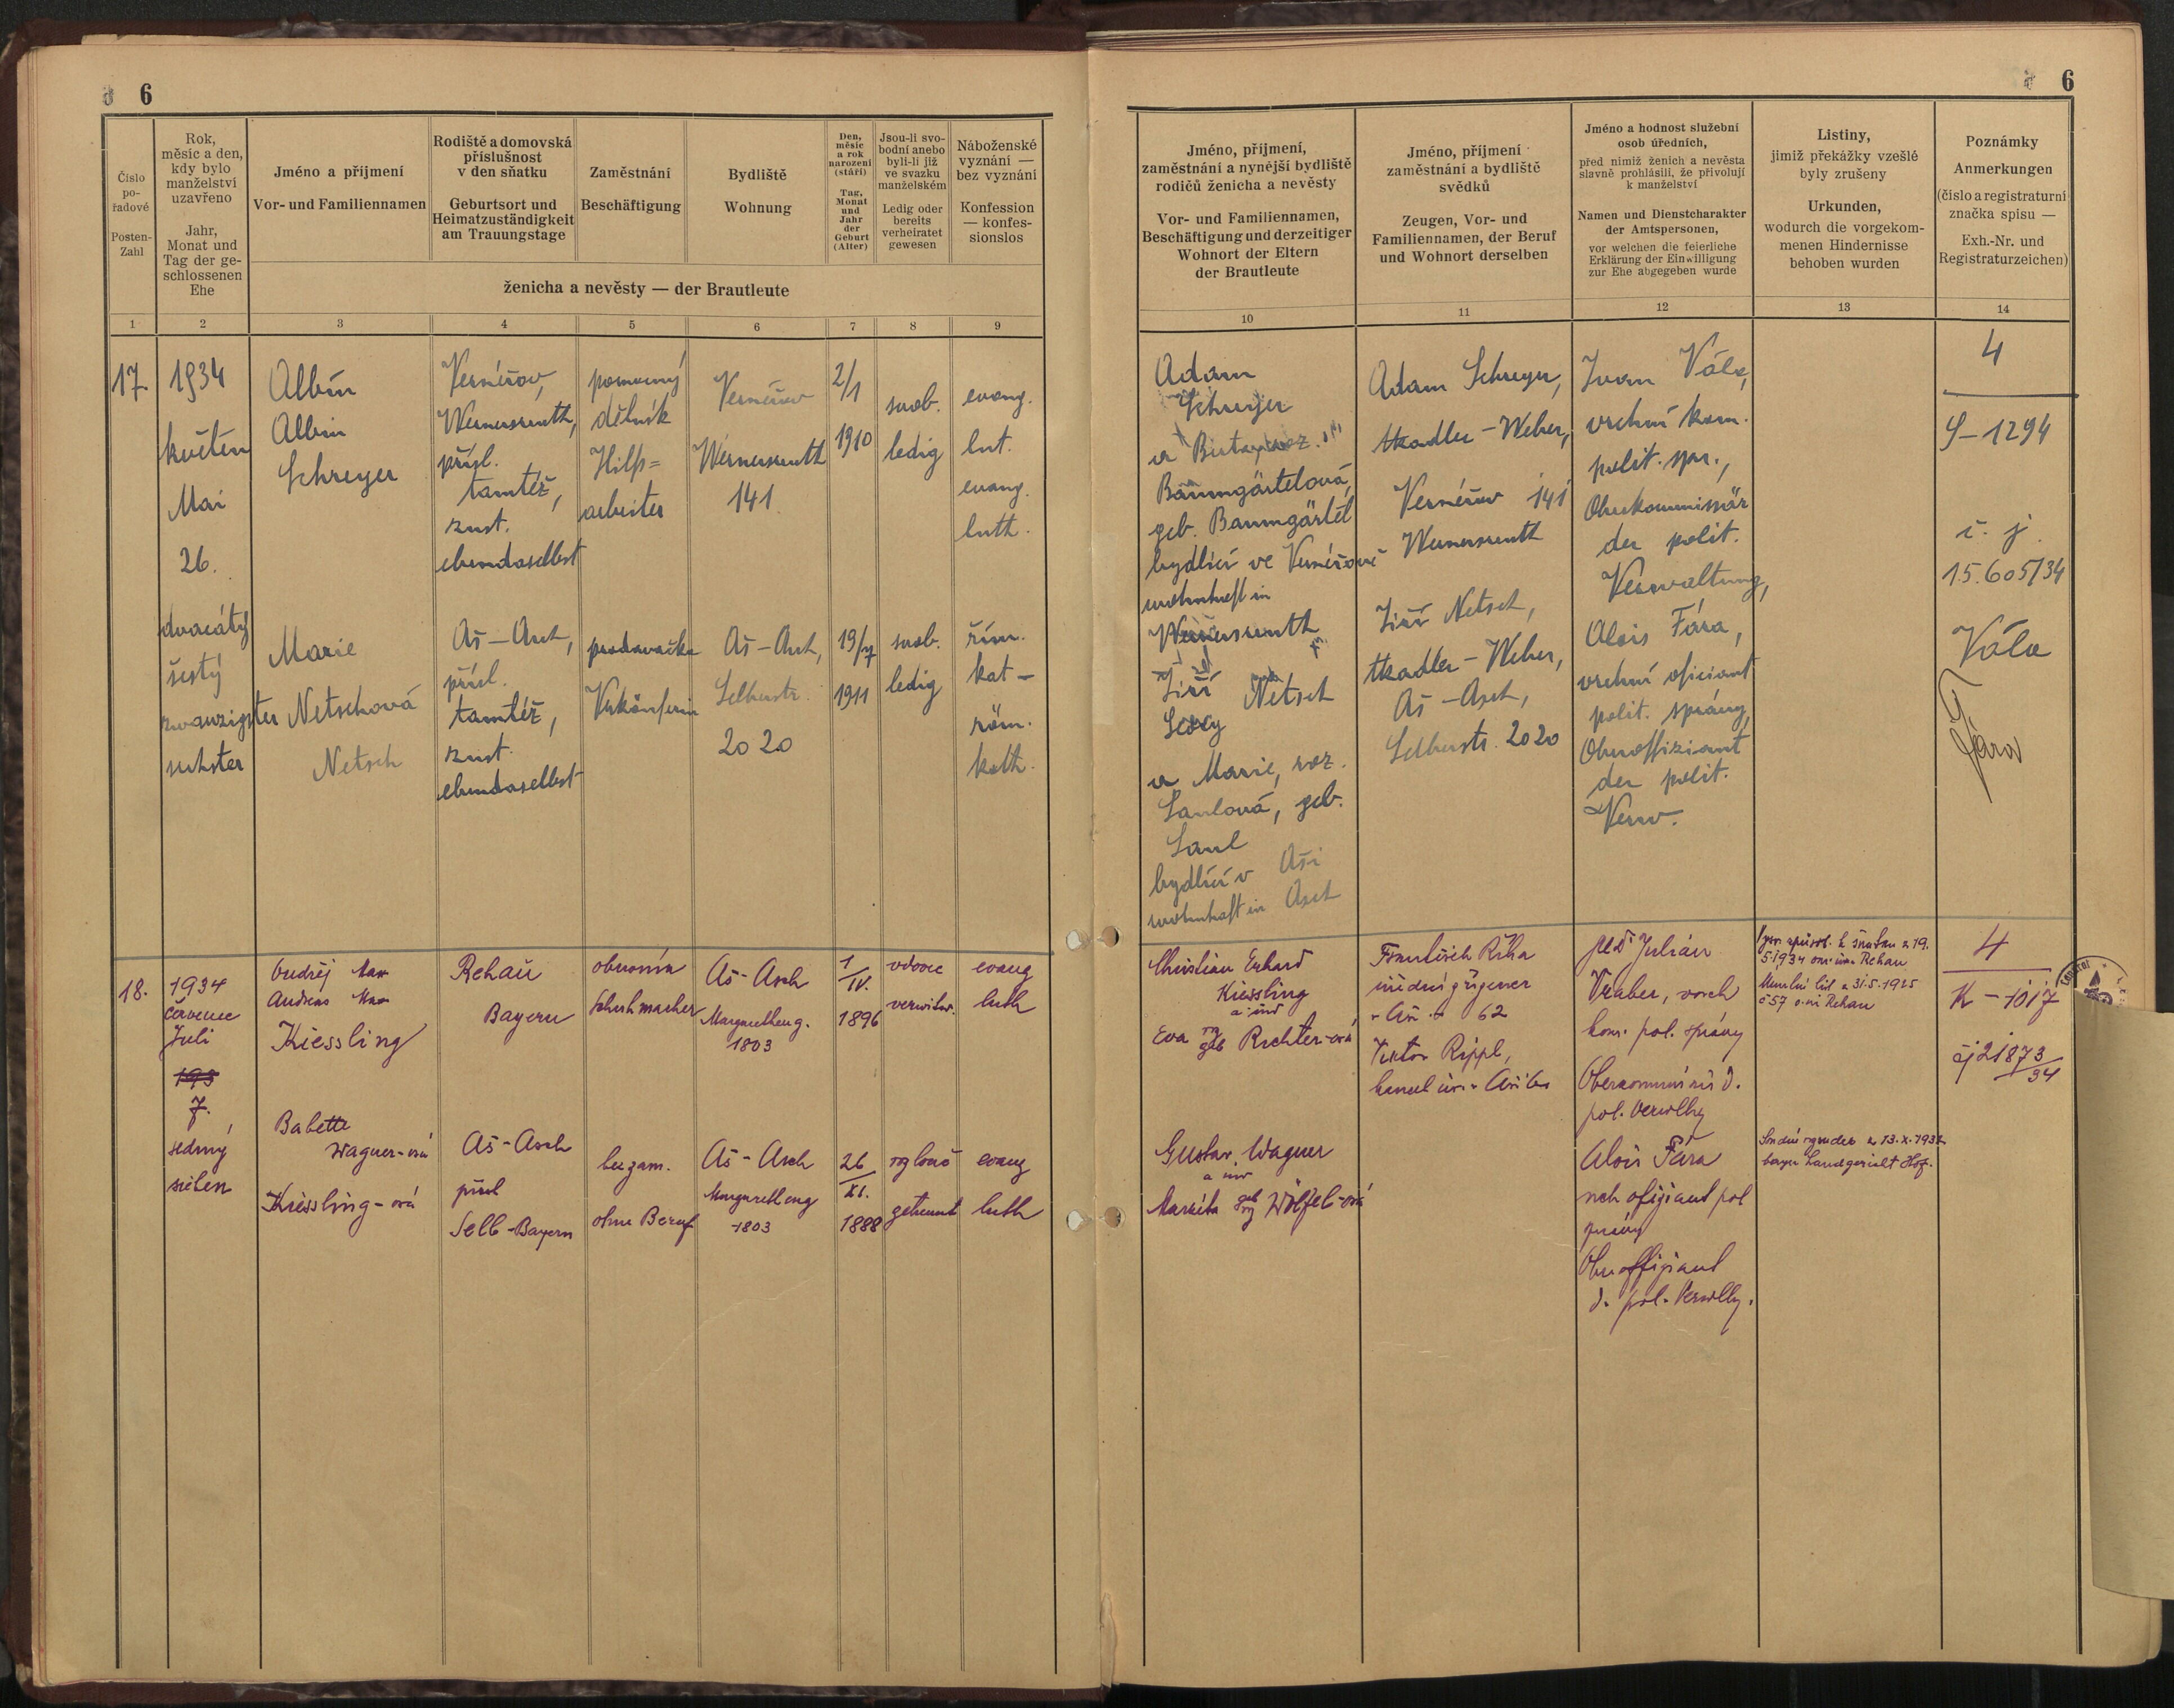 6
Číslo
po-
řadové
Posten-
Zahl
Rok,
měsíc a den,
kdy bylo
manželství
uzavřeno
Jahr,
Monat und
Tag der ge-
schlossenen
Ehe
Jméno a příjmení
Vor- und Familiennamen
Rodiště a domovská
příslušnost
v den sňatku
Geburtsort und
Heimatzuständigkeit
am Trauungstage
Zaměstnání
Beschäftigung
Bydliště
Wohnung
Den,
měsíc
a rok
narození
(stáří)
Tag,
Monat
und
Jahr
der
Geburt
(Alter)
Jsou-li svo-
bodní anebo
byli-li již
ve svazku
manželském
Ledig oder
bereits
verheiratet
gewesen
Náboženské
vyznání —
bez vyznání
Konfession
— konfes-
sionslos
ženicha a nevěsty — der Brautleute
1 2 3 4 5 6 7 8 9
17.
1934
květen
Mai
26.
dvacátý
šestý
zwanzigster
sechster
Albín
Albin
Schreyer
Marie
Netschová
Netsch
Vernéřov,
Wernersreuth,
přísl.
tamtéž,
zust.
ebendaselbst
Aš-Asch,
přísl.
tamtéž,
zust.
ebendaselbst
pomocný
dělník
Hilfs=
arbeiter
prodavačka
Verkäuferin
Vernéřov
Wernersreuth
141
Aš-Asch,
Selberstr.
2020
2/1
1910
19/7
1911
svob.
ledig
svob.
ledig
evang.
lut.
evang.
luth.
řím.
kat-
röm.
kath.
18.
1934
červenec
Juli
193
7.
sedmý
sieben
Ondřej Max
Andreas Max
Kiessling
Babette
Wagner-ová
Kiessling-ová
Rehau
Bayern
Aš-Asch
přísl
Selb-Bayern
obuvník
Schuhmacher
bez zam.
ohne Beruf
Aš-Asch
Margaretheng.
1803
Aš-Asch
Margaretheng
1803
1/IV.
1896
26/XI.
1888
vdovec
verwitw.
rozlouč
getrennt
evang
luth
evang
luth
6
Jméno, příjmení,
zaměstnání a nynější bydliště
rodičů ženicha a nevěsty
Vor- und Familiennamen,
Beschäftigung und derzeitiger
Wohnort der Eltern
der Brautleute
Jméno, příjmení
zaměstnání a bydliště
svědků
Zeugen, Vor- und
Familiennamen, der Beruf
und Wohnort derselben
Jméno a hodnost služební
osob úředních,
před nimiž ženich a nevěsta
slavně prohlásili, že přivolují
k manželství
Namen und Dienstcharakter
der Amtspersonen,
vor welchen die feierliche
Erklärung der Einwilligung
zur Ehe abgegeben wurde
Listiny,
jimiž překážky vzešlé
byly zrušeny
Urkunden,
wodurch die vorgekom-
menen Hindernisse
behoben wurden
Poznámky
Anmerkungen
(číslo a registraturní
značka spisu —
Exh.-Nr. und
Registraturzeichen)
10 11 12 13 14
Adam
Schreyer
a Berta, roz.
Baumgärtelová,
geb. Baumgärtel
bydlící ve Vernéřově
wohnhaft in
Wernersreuth
Jiří Netsch
Georg
a Marie, roz.
Saulová, geb.
Saul
bydlící v Aši
wohnhaft in Asch
Adam Schreyer,
tkadlec-Weber,
Vernéřov 141
Wernersreuth
Jiří Netsch,
tkadlec-Weber,
Aš-Asch,
Selberstr. 2020
Ivan Vála,
vrchní kom.
polit. spr.,
Oberkommissär
der polit.
Verwaltung,
Alois Fára,
vrchní oficiant
polit. správy,
Oberoffiziant
der polit.
Verw.
4
S-1294
č. j.
15.605/34
Vála
Fára
Christian Erhard
Kiessling
a
Eva roz geb Richter-ová
Gustav Wagner
a
Markéta geb roz Wölfel-ová
František Říha
úřední zřízenec
Aš 62
Viktor Rippl,
JUDr Julián
Vraber, vrch
kom. pol. správy
Oberkommissär d.
pol. Verwltg
Alois Fára
vrch ofiziant pol
správy
Oberoffiziant
d. pol. Verwltg.
5 1934 Rehau
Úmrtní list z 31.5.1925
č 57 Rehau
Soudní rozsudek z 13.X.1932
bayr. Landgericht Hof.
4
K-1017
čj 21873/34